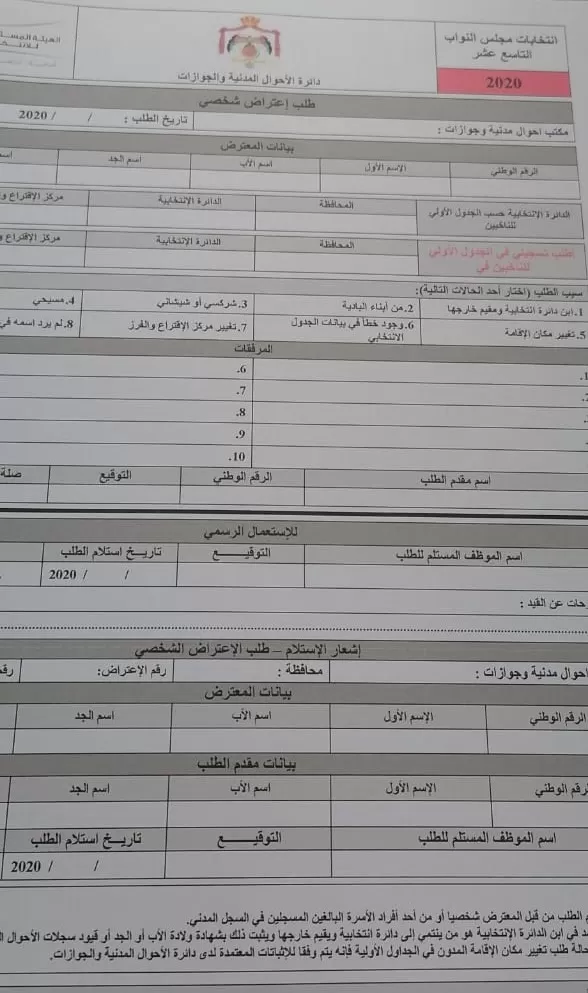 انتخابات مجلس النواب
التاسع عشر
2020
دائرة الأحوال المدنية والجوازات
طلب إعتراض شخصي
مكتب احوال مدنية وجوازات :
تاريخ الطلب : / / 2020
بيانات المعترض
الرقم الوطني الإسم الأول اسم الأب اسم الجد
الدائرة الانتخابية حسب الجدول الأولي المحافظة الدائرة الانتخابية مركز الإقتراع
للناخبين
اطلب تسجيلي في الجدول الأولي المحافظة الدائرة الانتخابية مركز الإقتراع
للناخبين في
سبب الطلب (اختار أحد الحالات التالية):
1.ابن دائرة انتخابية ومقيم خارجها 2.من أبناء البادية 3.شركسي أو شيشاني 4.مسيحي
5.تغيير مكان الإقامة 6.وجود خطأ في بيانات الجدول الانتخابي 7.تغيير مركز الإقتراع والفرز 8.لم يرد اسمه في
المرفقات
1. 6.
2. 7.
8.
9.
10.
اسم مقدم الطلب الرقم الوطني التوقيع صلة
للإستعمال الرسمي
اسم الموظف المستلم للطلب التوقيـــــع تاريـــخ استلام الطلب
/ / 2020
عن القيد :
إشعار الإستلام – طلب الإعتراض الشخصي
احوال مدنية وجوازات : محافظة : رقم الإعتراض:
بيانات المعترض
الرقم الوطني الإسم الأول اسم الأب اسم الجد
بيانات مقدم الطلب
الرقم الوطني الإسم الأول اسم الأب اسم الجد
اسم الموظف المستلم للطلب التوقيـــــع تاريـــخ استلام الطلب
/ / 2020
الطلب من قبل المعترض شخصيا أو من أحد أفراد الأسرة البالغين المسجلين في السجل المدني.
في ابن الدائرة الإنتخابية هو من ينتمي إلى دائرة انتخابية ويقيم خارجها ويثبت ذلك بشهادة ولادة الأب أو الجد أو قيود سجلات الأحوال
طلب تغيير مكان الإقامة المدون في الجداول الأولية فإنه يتم وفقا للإثباتات المعتمدة لدى دائرة الأحوال المدنية والجوازات.